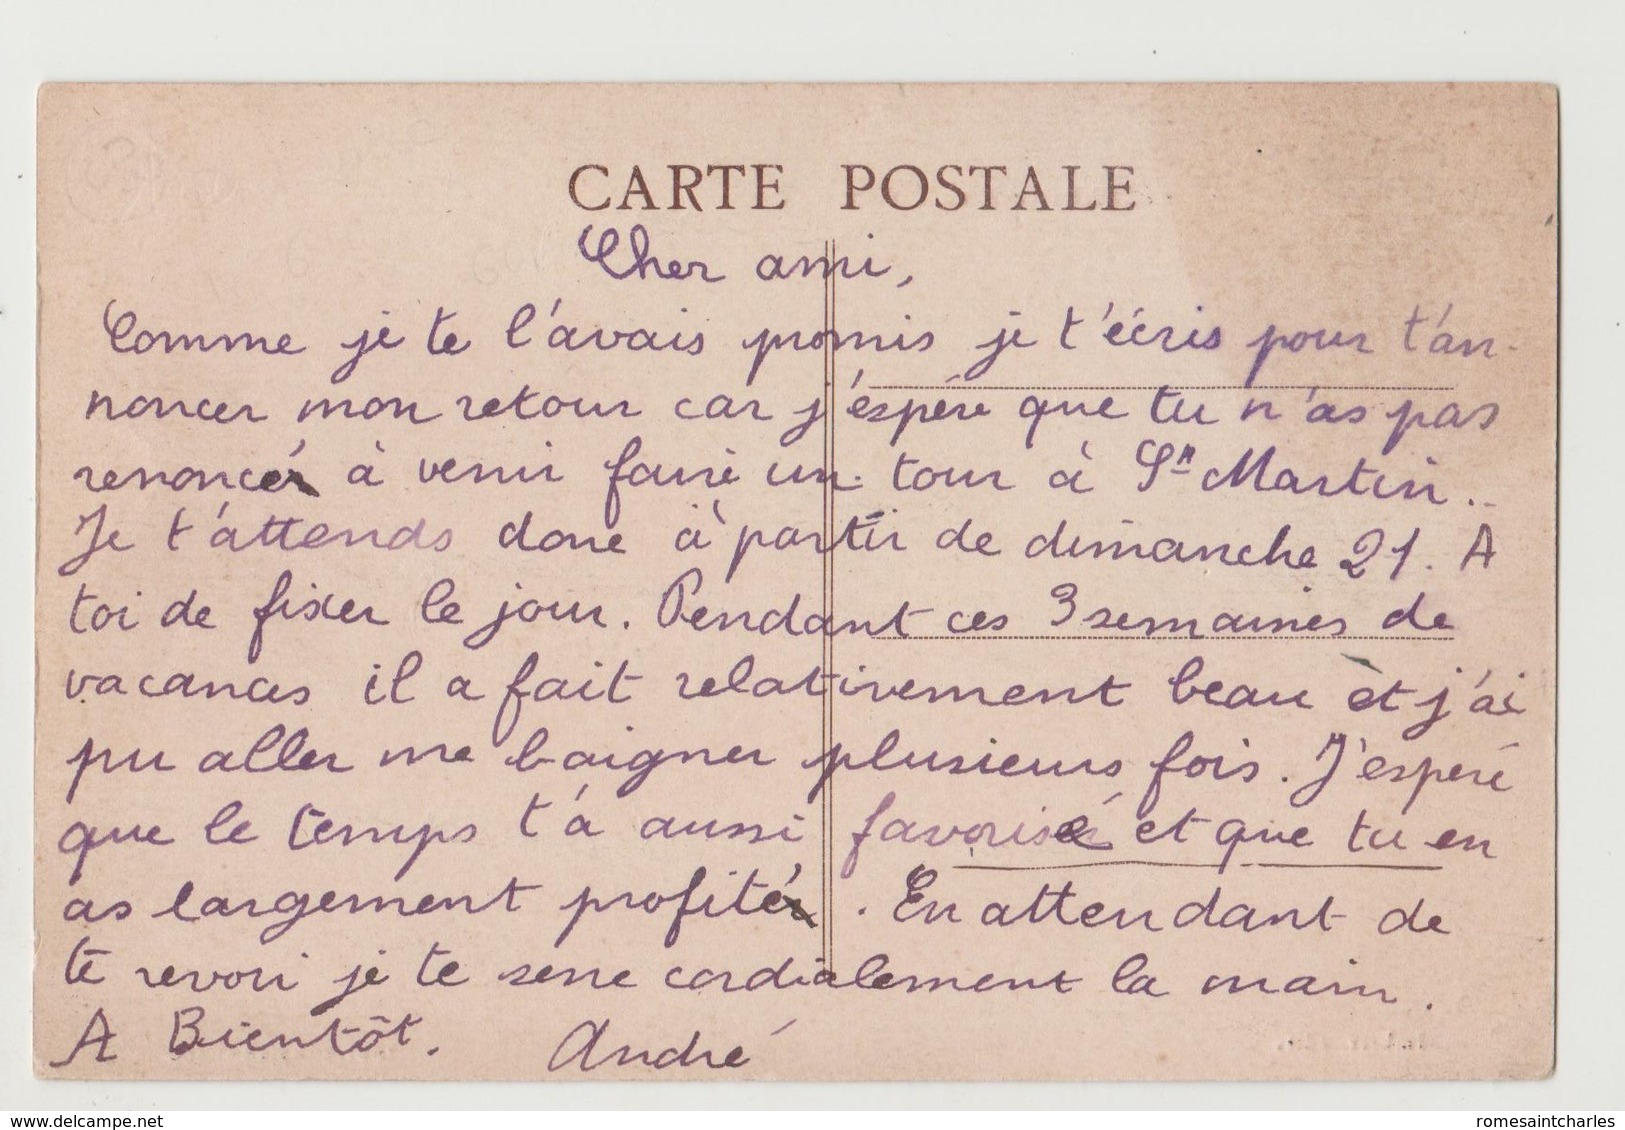 CARTE POSTALE
Cher ami,
Comme je te l'avais promis je t'écris pour t'an-
noncer mon retour car j'éspére que tu n'as pas
renoncé à venir faire un tour à St Martin..
Je t'attends donc à partir de dimanche 21. A
toi de fixer le jour. Pendant ces 3 semaines de
vacances il a fait relativement beau et j'ai
pu aller me baigner plusieurs fois. J'espére
que le temps t'a aussi favorisé et que tu en
as largement profité. En attendant de
te revoir je te serre cordialement la main.
A Bientôt. André
delcampe.net
romesaintcharles